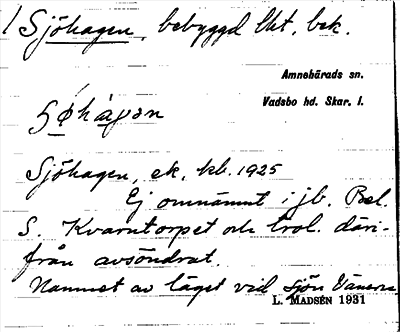 1 Sjöhagen, bebyggd lht, bek.
Amnehärads sn.
Vadsbo hd. Skar. l.
Sjöhagen, ek. kb. 1925
Ej omnämnt i jb. Bel.
S. Kvarntorpet och trol. däri-
från avsöndrat.
Namnet av läget vid sjön Vänern
L. MADSÉN 1931